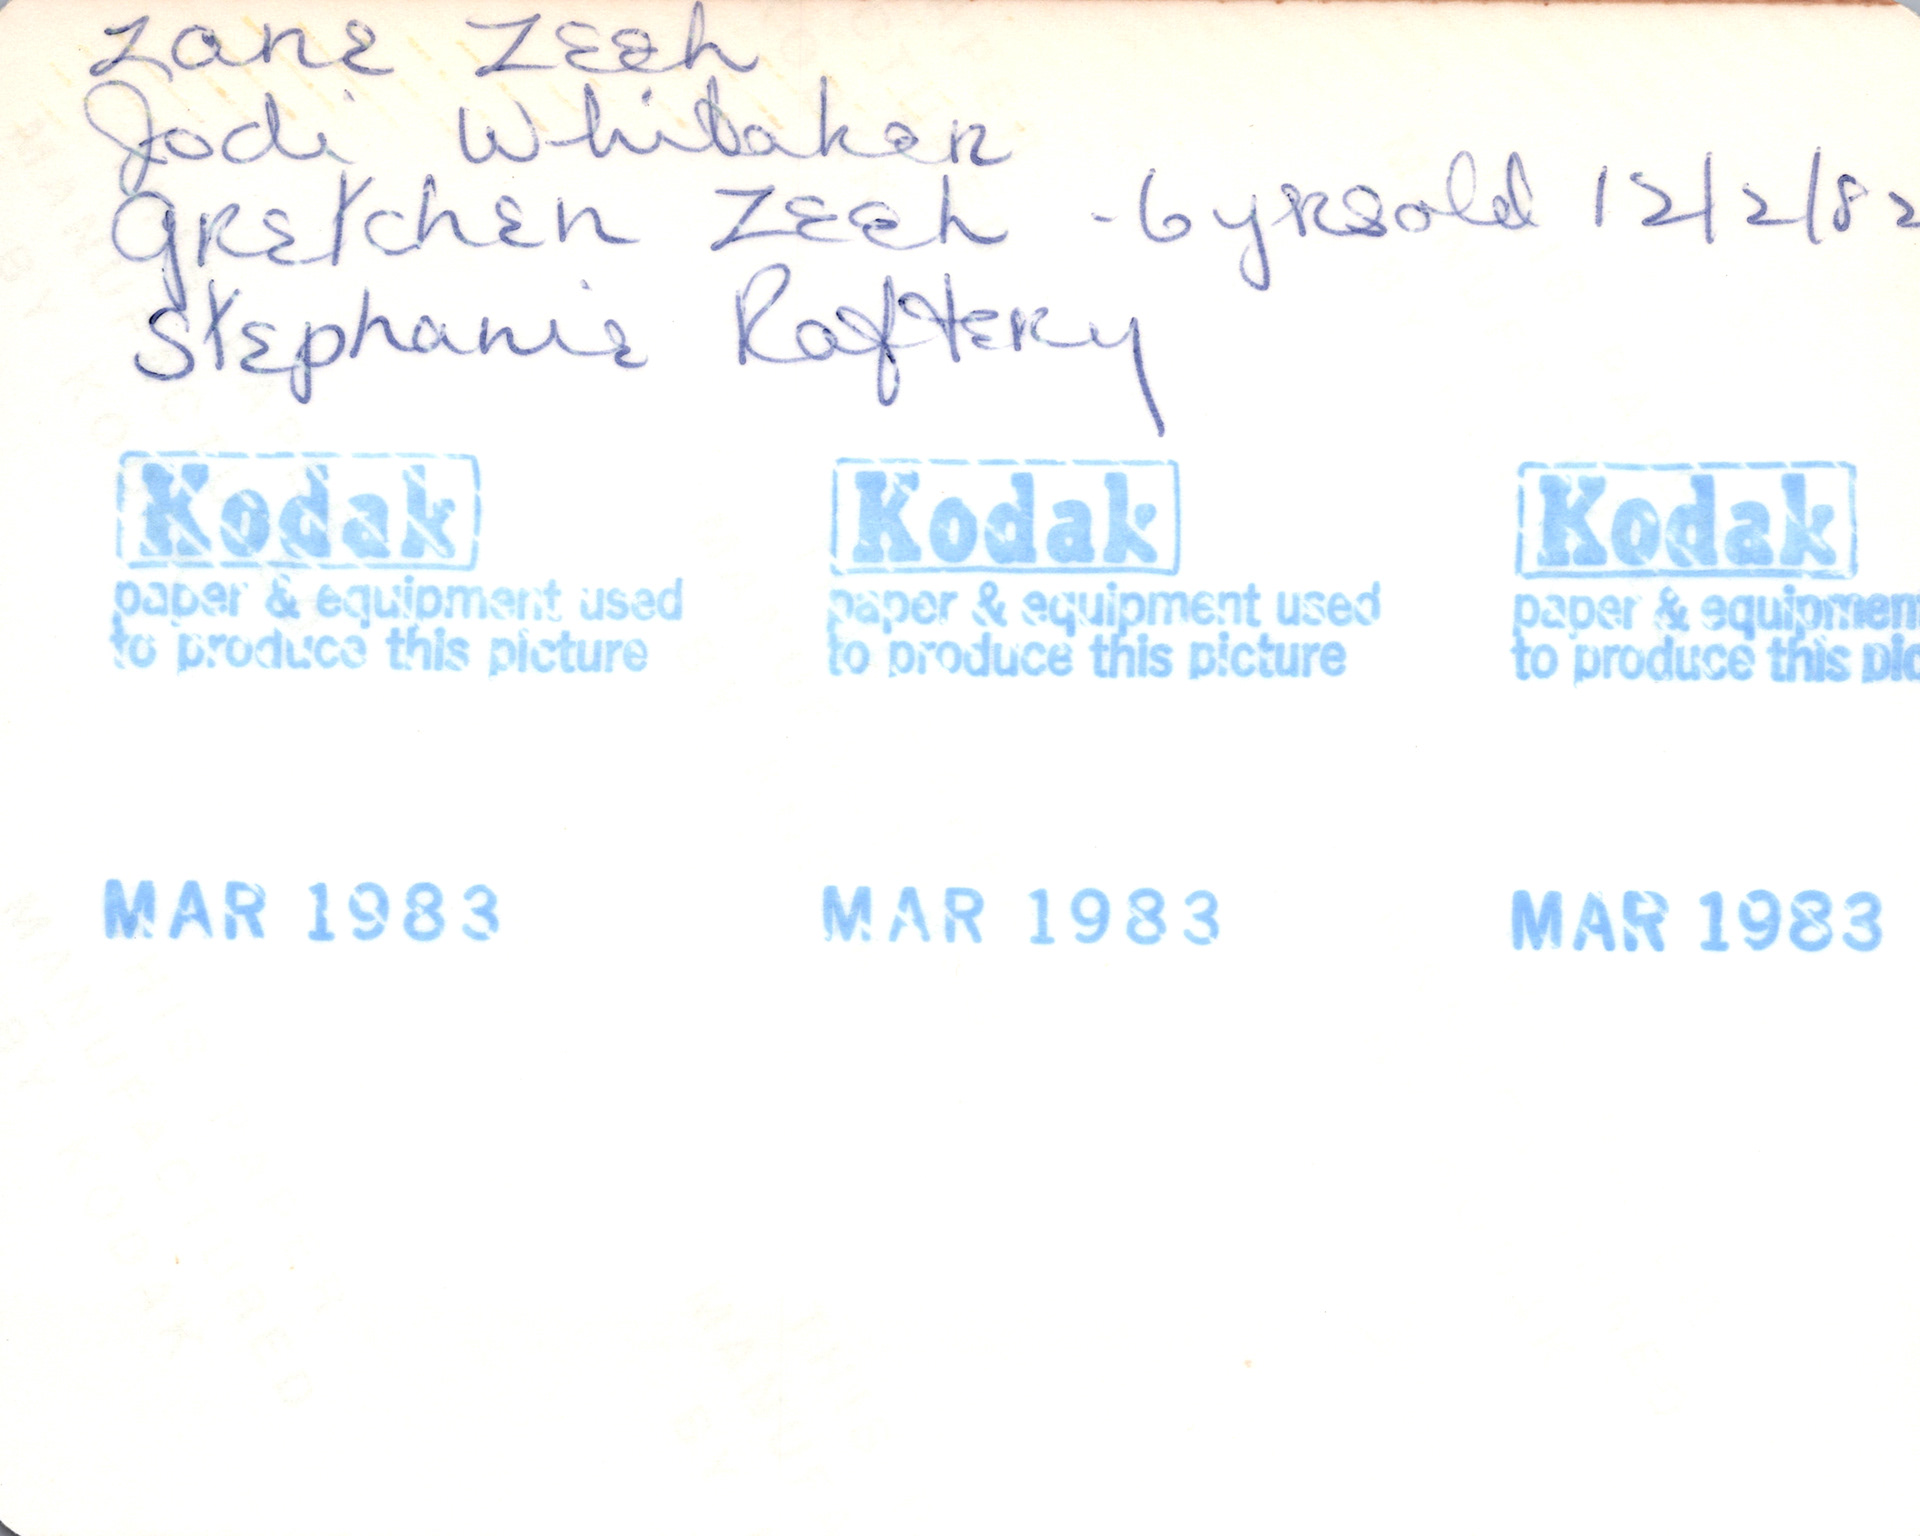 Zane Zeeh
Jodi Whitaker
Gretchen Zeeh - 6 yrs old 12/2/82
Stephanie Raftery
Kodak Kodak Kodak
paper & equipment used paper & equipment used paper & equipmen
to produce this picture to produce this picture to produce this pic
MAR 1983 MAR 1983 MAR 1983